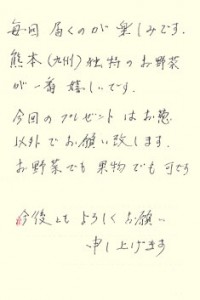 毎回 届くのが 楽しみです。
熊本(九州)独特のお野菜
が一番 嬉しいです。
今回のプレゼントはお
以外でお願い致します。
お野菜でも果物でも可です
今後ともよろしくお願い
申し上げます